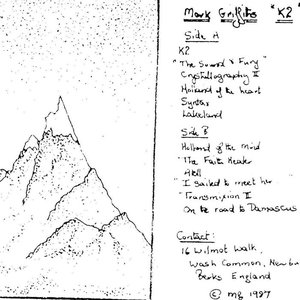 Mark Griffiths "K2"
Side A
K2
"The Sound & Fury
Crystallography II
Holland of the heart
Syntax
Lakeland
Side B
Holland of the mind
"The Faith Healer
"I sailed to meet her
"Transmission II
On the road to Damascus
Contact:
16 Wilmot Walk
Wash Common, Newbu
Berks England
© mg 1987